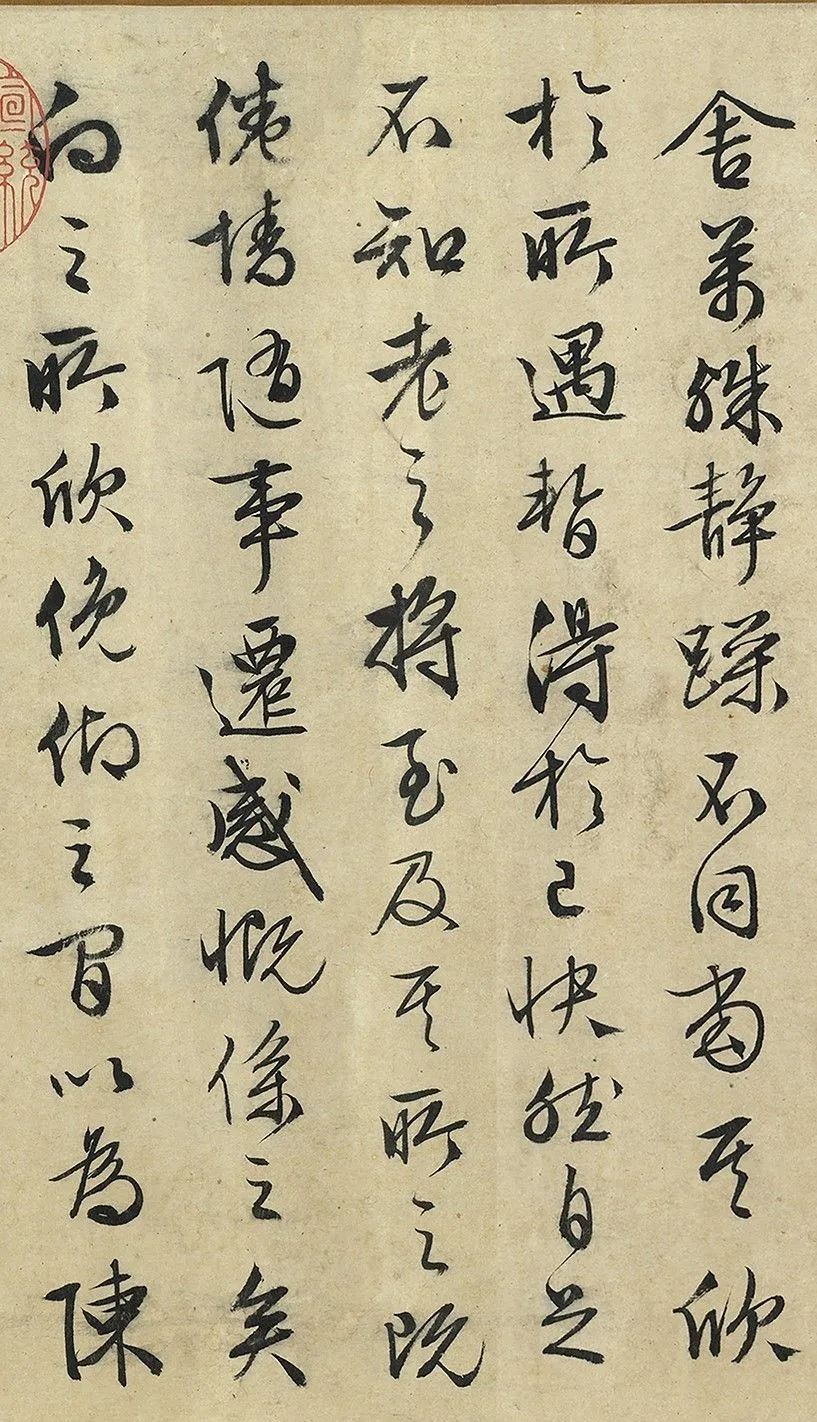 舍萬殊静躁不同當其欣
於所遇暫得於己快然自足
不知老之將至及其所之既
倦情隨事遷感慨係之矣
向之所欣俛仰之間以為陳
宣統